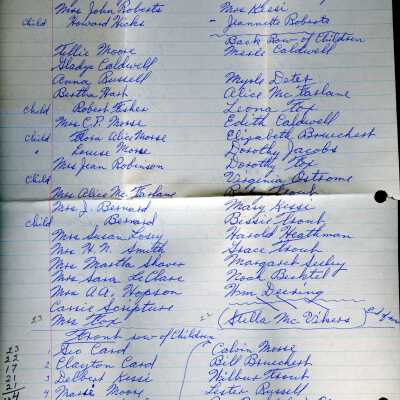 Mrs John Roberts
Child Howard Hicks
Tillie Moore
Gladys Caldwell
Anna Russell
Bertha Hart
Child Robert Fisher
Mrs C.P. Morse
Child Flora Alice Morse
" Louise Morse
Mrs Jean Robinson
Child
Mrs Alice McFarlane
Mrs. J. Bernard
Child Bernard
Mrs Susan Losey
Mrs W. N. Smith
Mrs Martha Shaver
Mrs Sara LeClare
Mrs A.A. Hopson
Carrie Scripture
23 Mrs Fox
Front row of Children
1 Geo Card
2 Clayton Card
3 Delbert Kessi
4 Moore
23
22
17
21
21
Mrs Kessi
Jeannette Roberts
Back Row of Children
Merle Caldwell
Myrle Deter
Alice McFarlane
Leona Fox
Edith Caldwell
Elizabeth Bruechert
Dorothy Jacobs
Dorothy Fox
Virginia Ostrome
Trout
Mary Kessi
Bessie Trout
Harold Heathman
Grace Trout
Margaret Seeley
Noah Bechtel
Wm Deering
22 (Stella McVikers)
Calvin Morse
Bill Bruechert
Wilbur Trout
Lester Russell